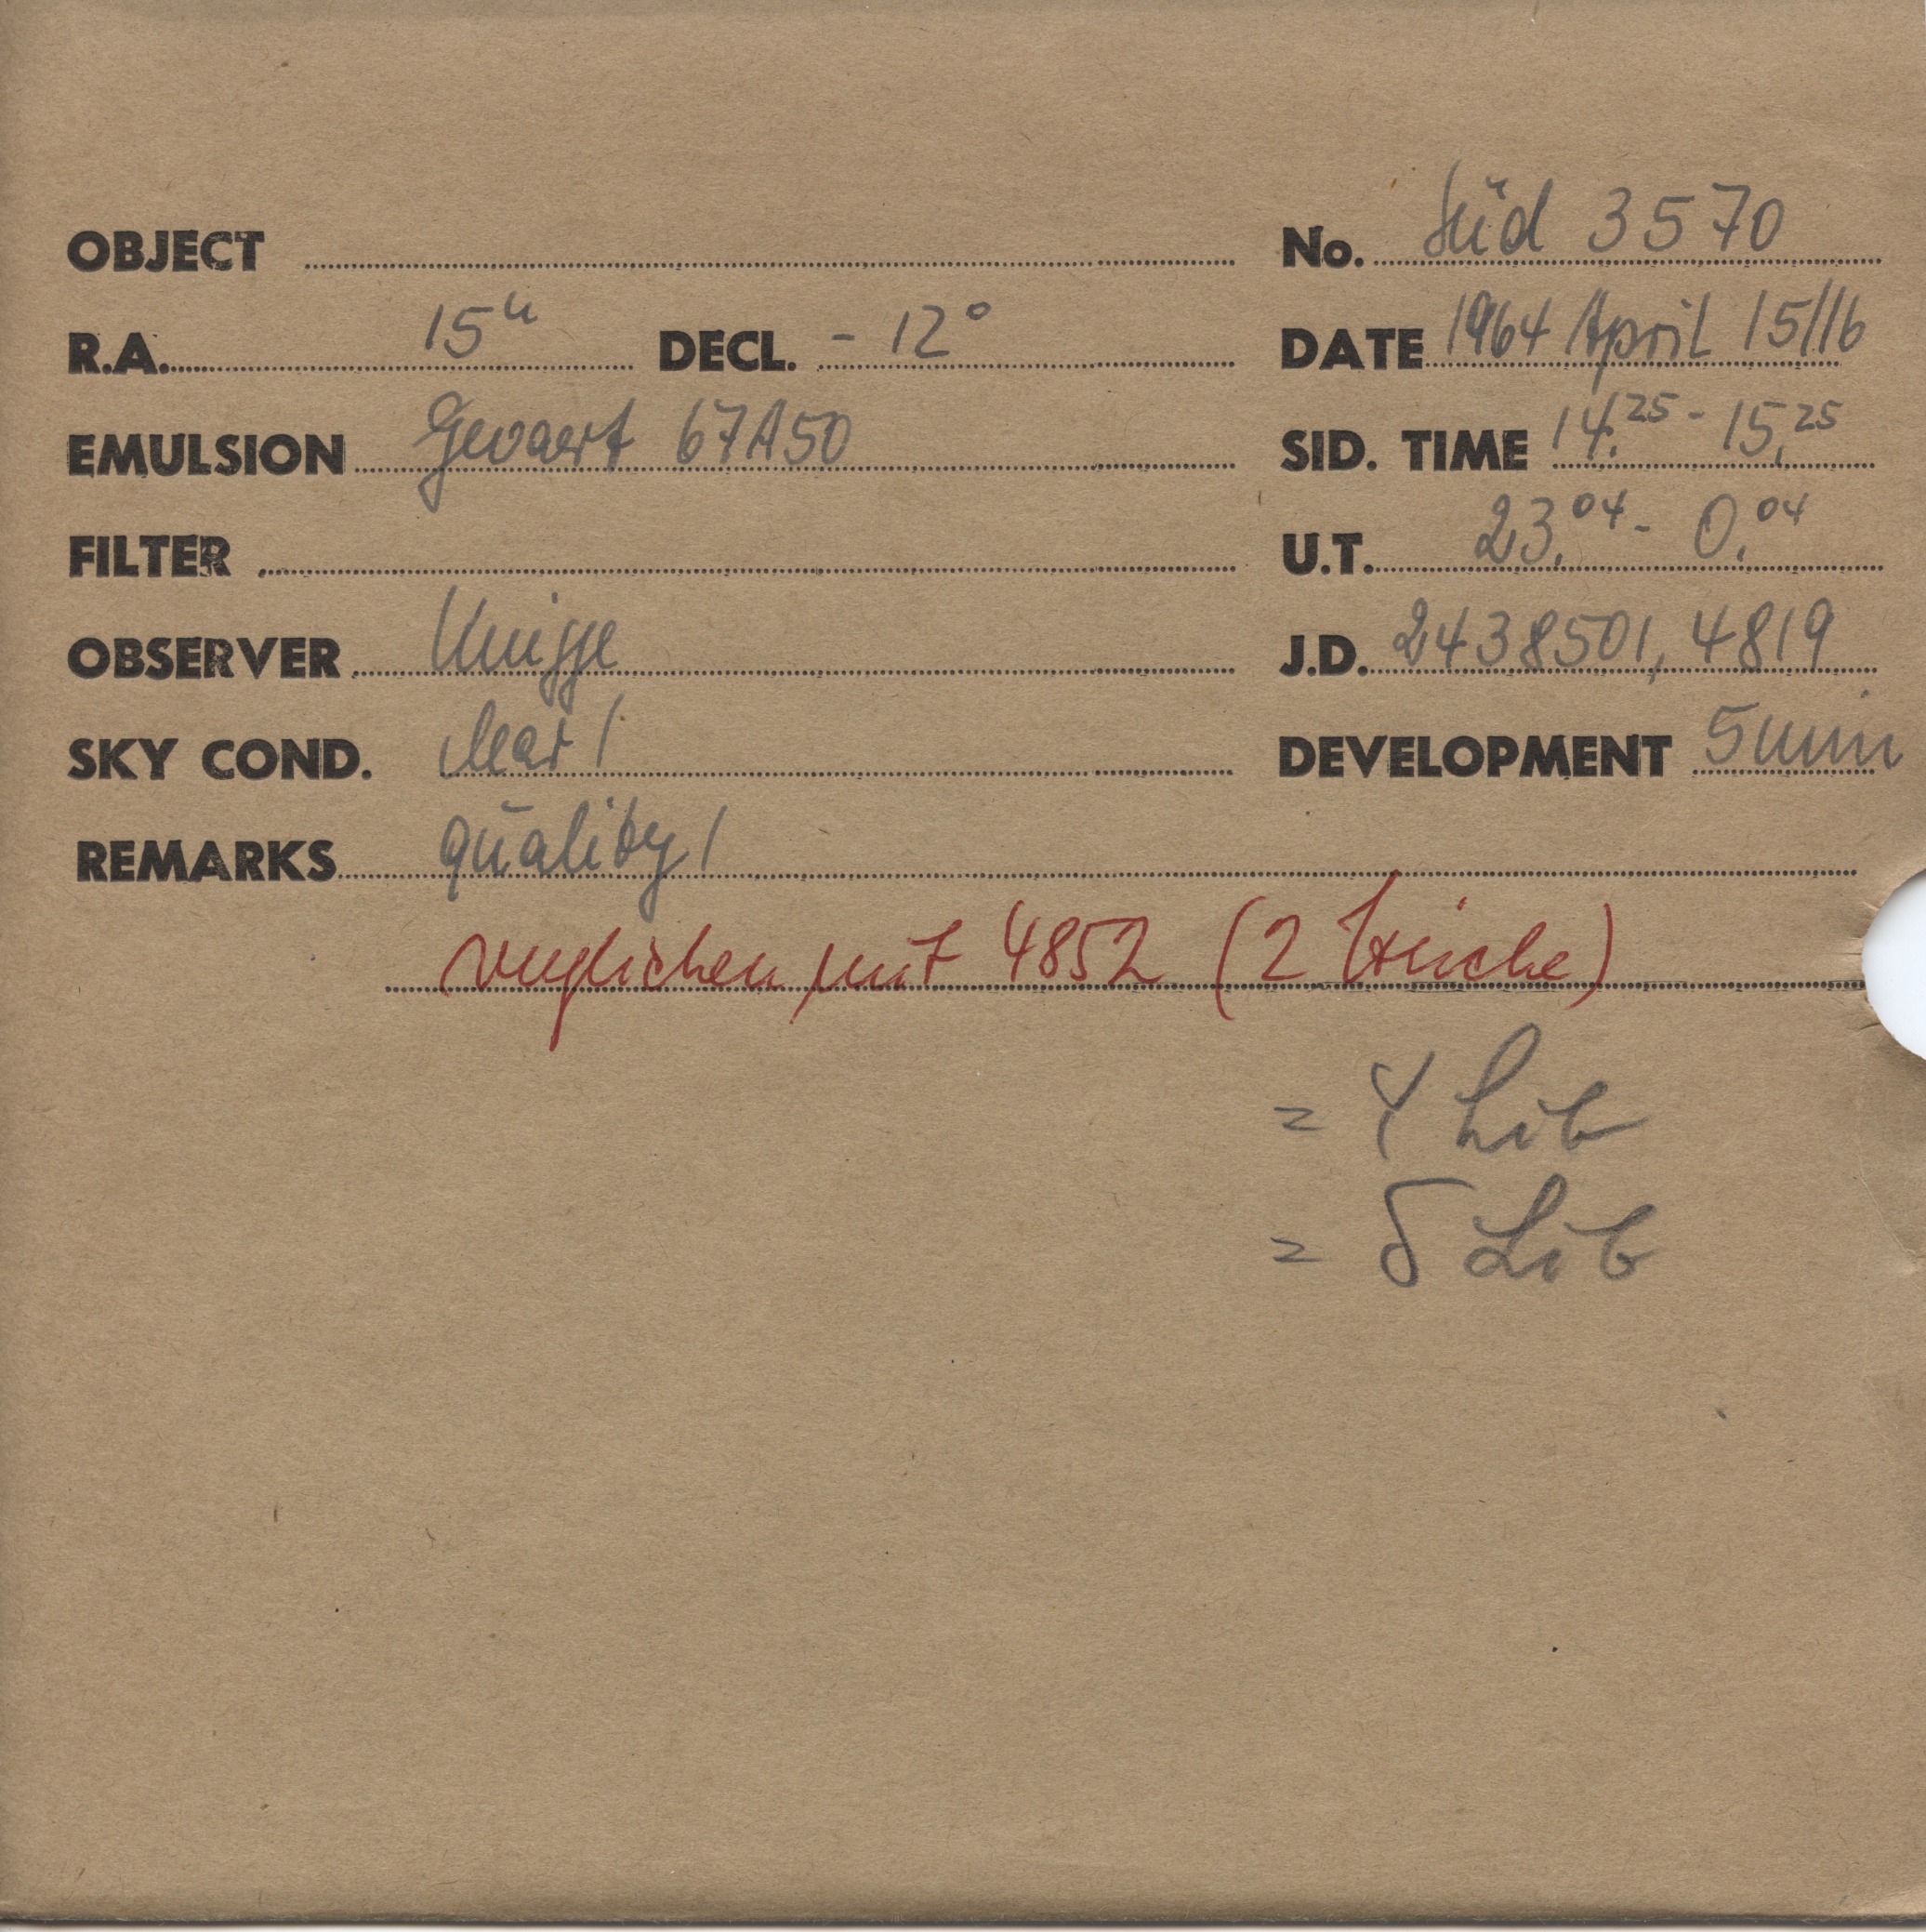 OBJECT No. Süd 3570
R.A. 15h DECL. - 12° DATE 1964 April 15/16
EMULSION Gevaert 67A50 SID. TIME 14.25 - 15.25
FILTER U.T. 23.04 - 0.04
OBSERVER Knigge J.D. 2438501,4819
SKY COND. clear 1 DEVELOPMENT 5 min
REMARKS quality 1
verglichen mit 4852 (2 Striche)
= Y Lib
= δ Lib